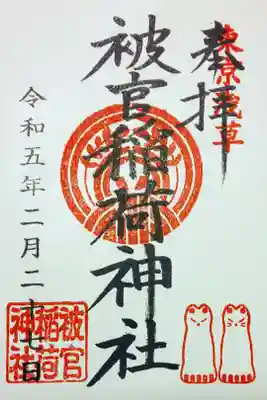 東京浅草
奉拝
被官稲荷神社
令和五年二月二十七日
被官
稲荷
神社